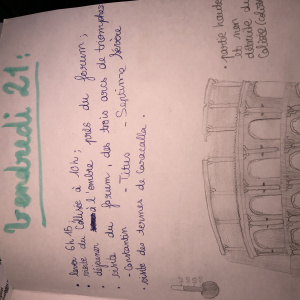 Vendredi 21 :
• lever 6h15
• visite du Colisée à 10h ;
• déjeuner à l'ombre près du forum ;
• visite du forum, des trois arcs de triomphes
- Constantin - Titus - Septime Sévère
• visite des termes de Caracalla.
• partie haute
et non
détruite du
Colisée